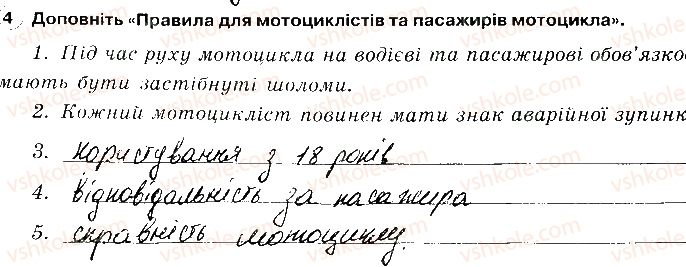 4 Доповніть «Правила для мотоциклістів та пасажирів мотоцикла».
1. Під час руху мотоцикла на водієві та пасажирові обов'язко
мають бути застібнуті шоломи.
2. Кожний мотоцикліст повинен мати знак аварійної зупинк
3. Користування з 18 років
4. Відповідальність за пасажира
5. справність мотоциклу.